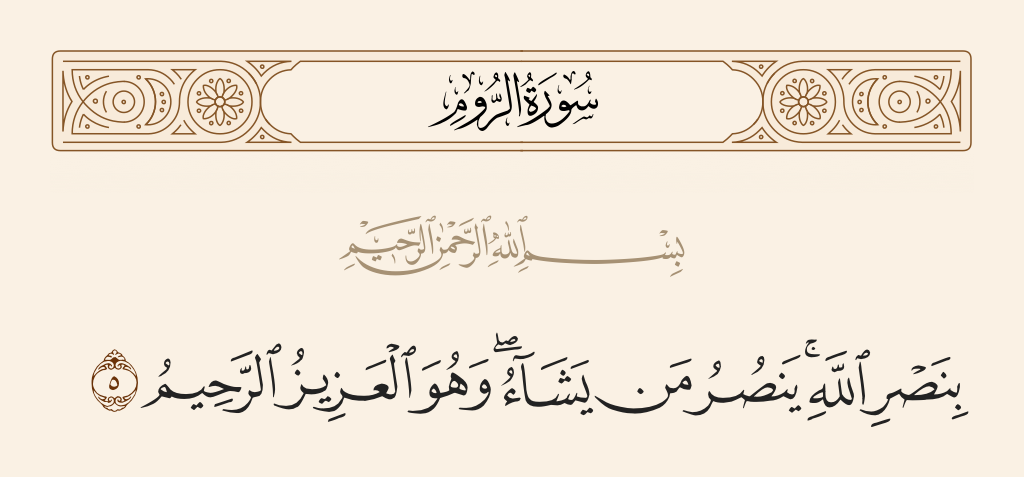 سُورَةُ الرُّومِ
بِسْمِ ٱللَّهِ ٱلرَّحْمَٰنِ ٱلرَّحِيمِ
بِنَصْرِ ٱللَّهِ ۚ يَنصُرُ مَن يَشَآءُ ۖ وَهُوَ ٱلْعَزِيزُ ٱلرَّحِيمُ ٥